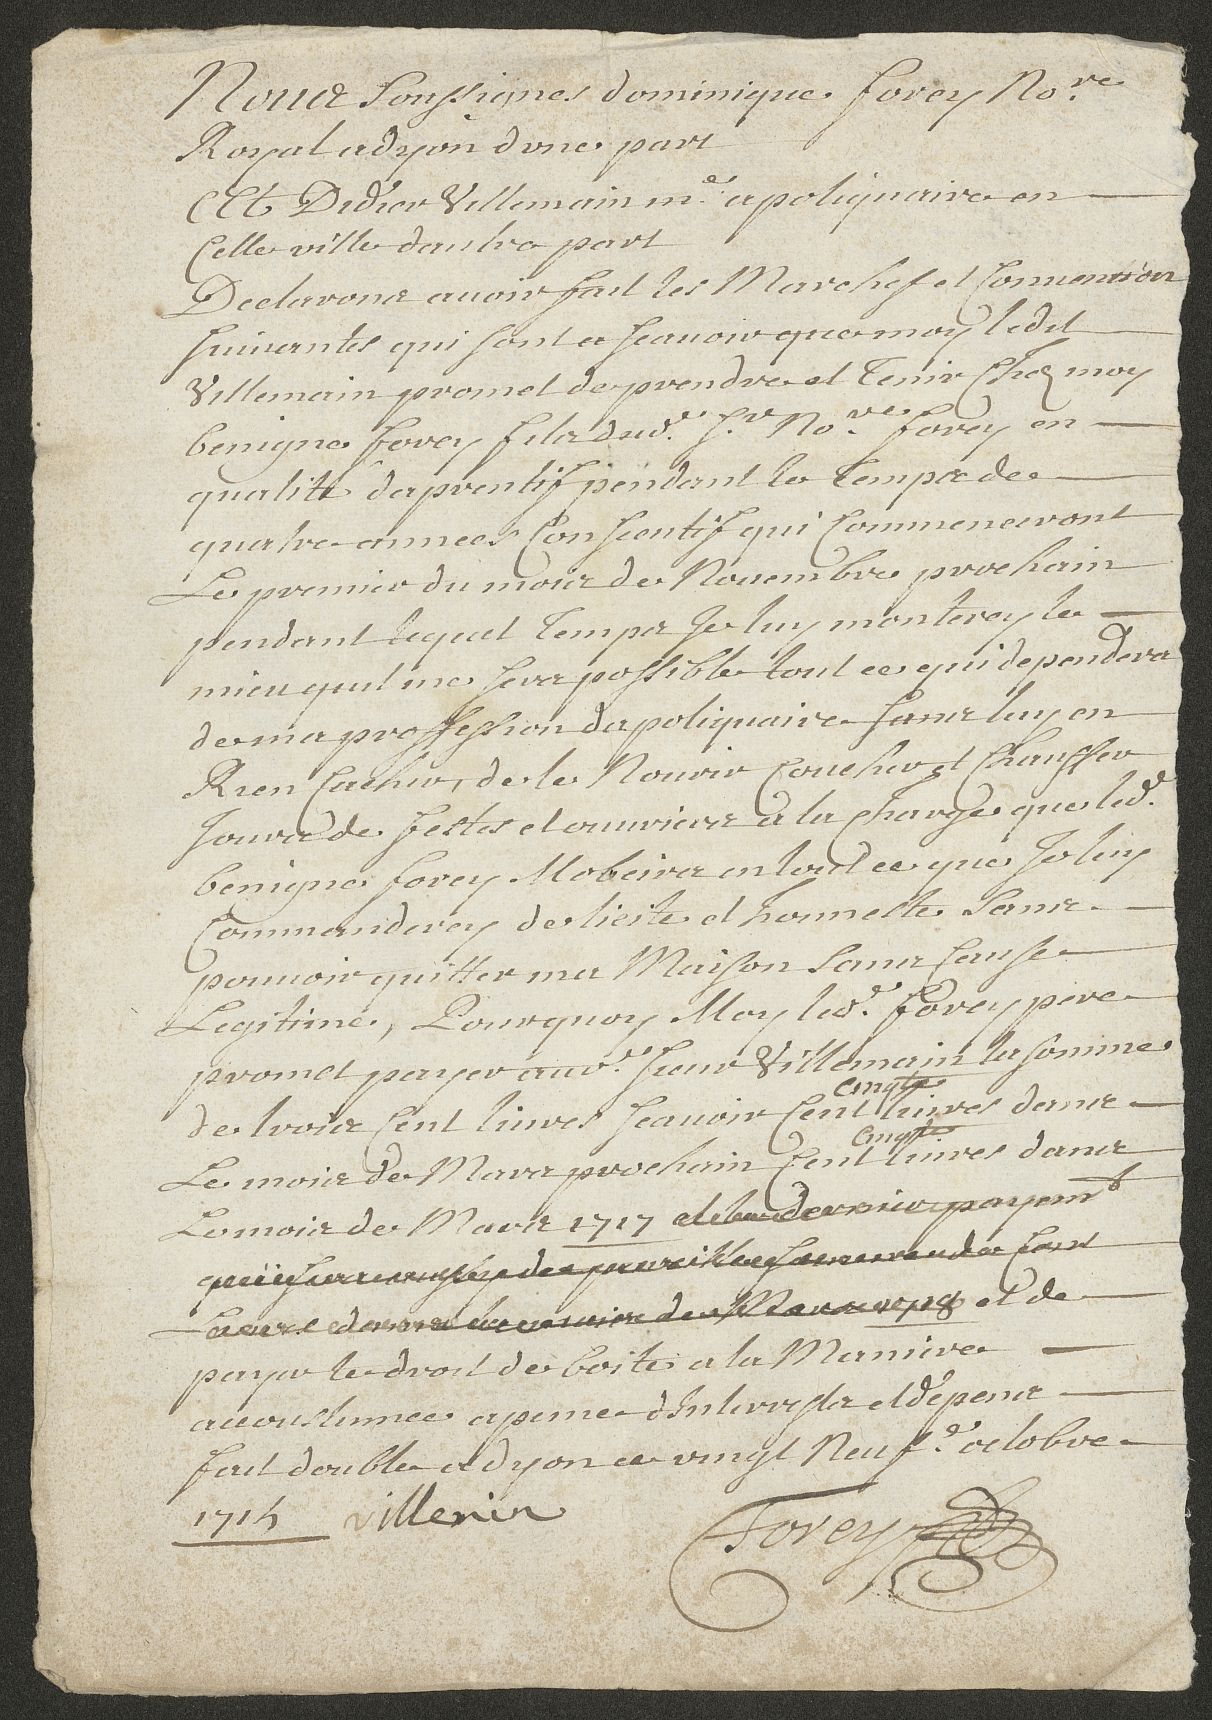 Nous soussignes dominique forey No.re
Royal a dyon d'vne part
Et Didier Villemain m.e apotiquaire en
Celle ville dautre part
Declarons auoir fait les Marchef et Conuention
suiuantes qui sont a scauoir que moy ledit
Villemain promet de prendre et Tenir Chez moy
benigne forey fils dud.t s.r No.re forey en
qualite daprentif pendant le Temps de
quatre annees Consecutif qui Commenceront
Le premier du mois de Nouembre prochain
pendant lequel temps Je luy monterey le
mieu quil me sera possible tout ce qui dependera
de ma proffession dapotiquaire sans luy en
Rien Cacher, de le Nourir Coucher et Chauffer
Jours de festes et ouuriers a la Charge que led.t
benigne forey Mobeira en tout ce que Je luy
Commanderey de licite et honneste sans
pouuoir quitter ma Maison sans Cause
Legitime, Pourquoy Moy led.t forey pere
promet payer aud.t sieur Villemain la somme
de trois Cent liures scauoir Cent cinqte liures dans
Le mois de Mars prochain Cent cinqte liures dans
Le mois de Mars 1717 et le dernier payemt
Liures dans le mois de Mars 1718 et de
payer le droit de boite a la Maniere
accoustumee a peine d'Interests et depens
fait double a dyon ce vingt Neuf.e octobre
1715 villemin
Forey